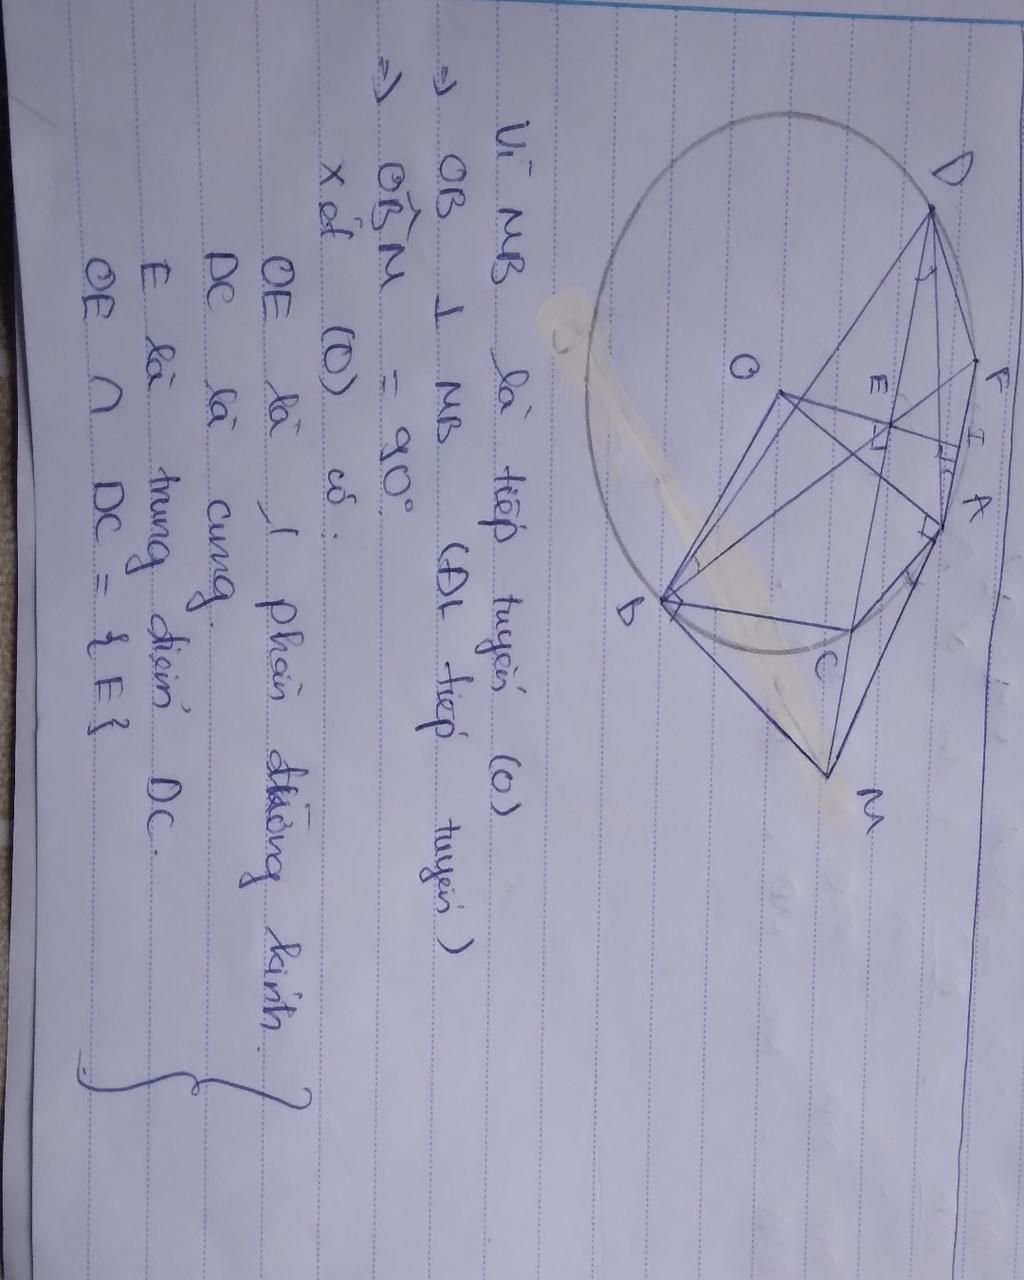 D
F
I
A
E
O
K
B
C
M
Vì MB là tiếp tuyến (O)
=) OB ⊥ MB (ĐL tiếp tuyến)
=) OB̂M = 90°
Xét (O) có:
OE là 1 phần đường kính.
DC là cung.
E là trung điểm DC.
OE ∩ DC = {E}